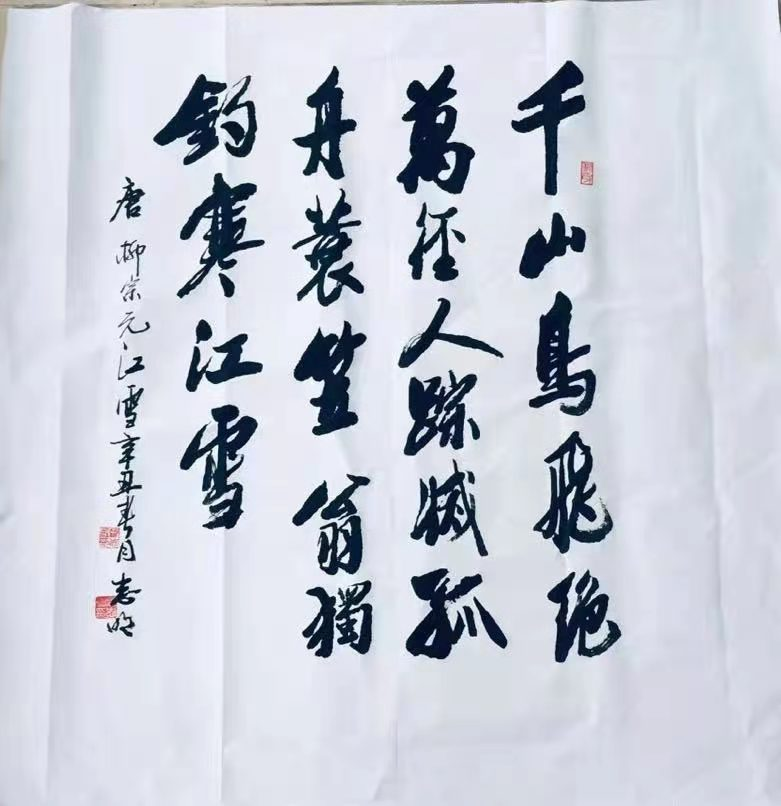 千山鳥飛绝
萬径人踪滅孤
舟蓑笠翁獨
釣寒江雪
唐柳宗元江雪辛丑春月志明